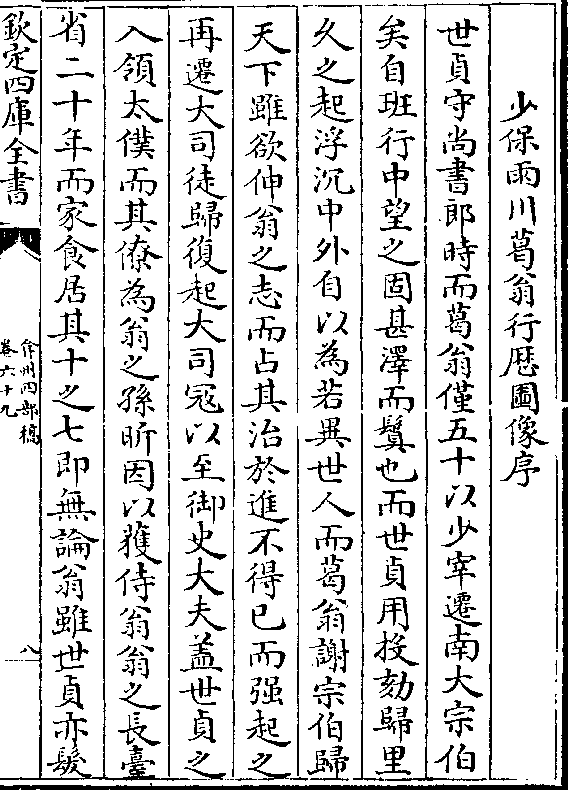 少保雨川葛翁行厯圖像序
世貞守尚書郎時而葛翁僅五十以少宰遷南大宗伯
矣自班行中望之固甚澤而鬒也而世貞用投劾歸里
久之起浮沉中外自以為若異世人而葛翁謝宗伯歸
天下雖欲伸翁之志而占其治於進不得已而强起之
再遷大司徒歸復起大司冦以至御史大夫盖世貞之
入領太僕而其僚為翁之孫昕因以獲侍翁翁之長臺
省二十年而家食居其十之七即無論翁雖世貞亦髮
欽定四庫全書
弇州四部稿
卷六十九
八